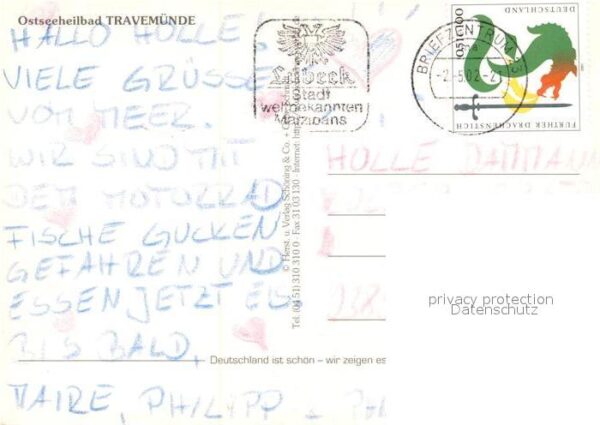 Ostseeheilbad TRAVEMÜNDE
HALLO HOLLE,
VIELE GRÜSSE
VOM MEER.
WIR SIND MIT
DEM MOTORRAD
FISCHE GUCKEN
GEFAHREN UND
ESSEN JETZT EIS
BIS BALD,
MAIRE, PHILIPP +
Lübeck
Stadt
weltbekannten
Marzipans
BRIEFZENTRUM
-2.-5.02.-21
DEUTSCHLAND
FURTHER DRACHENSTICH
© Herst. u. Verlag Schöning & Co. +
Tel. (04 51) 310 310 0 Fax 31 03 130 Internet:
HOLLE DAMMANN
privacy protection
Datenschutz
Deutschland ist schön – wir zeigen es